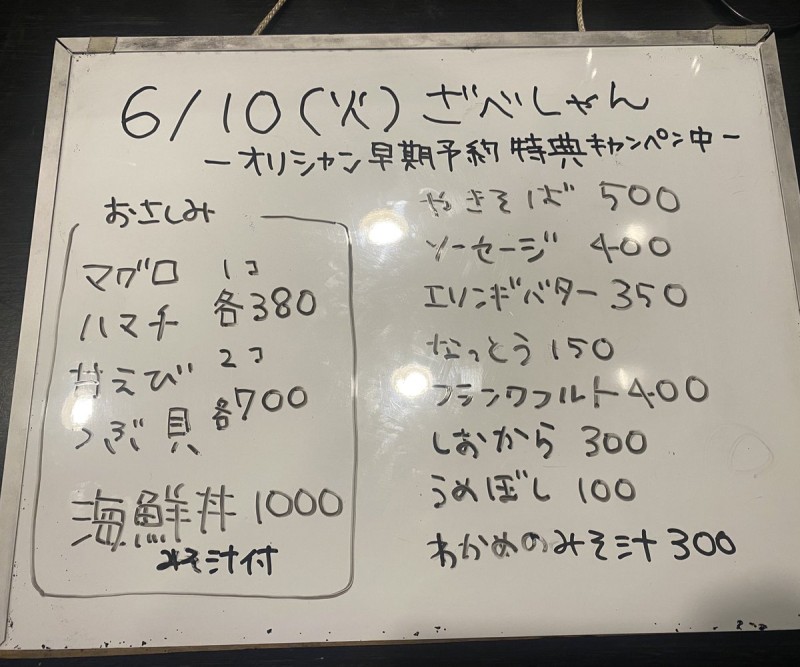 6/10(火) ざべしゃん
-オリシャン早期予約 特典キャンペン中-
おさしみ
マグロ 1コ
ハマチ 各380
甘えび 2コ
つぶ貝 各700
海鮮丼 1000
みそ汁付
やきそば 500
ソーセージ 400
エリンギバター 350
なっとう 150
フランクフルト 400
しおから 300
うめぼし 100
わかめのみそ汁 300